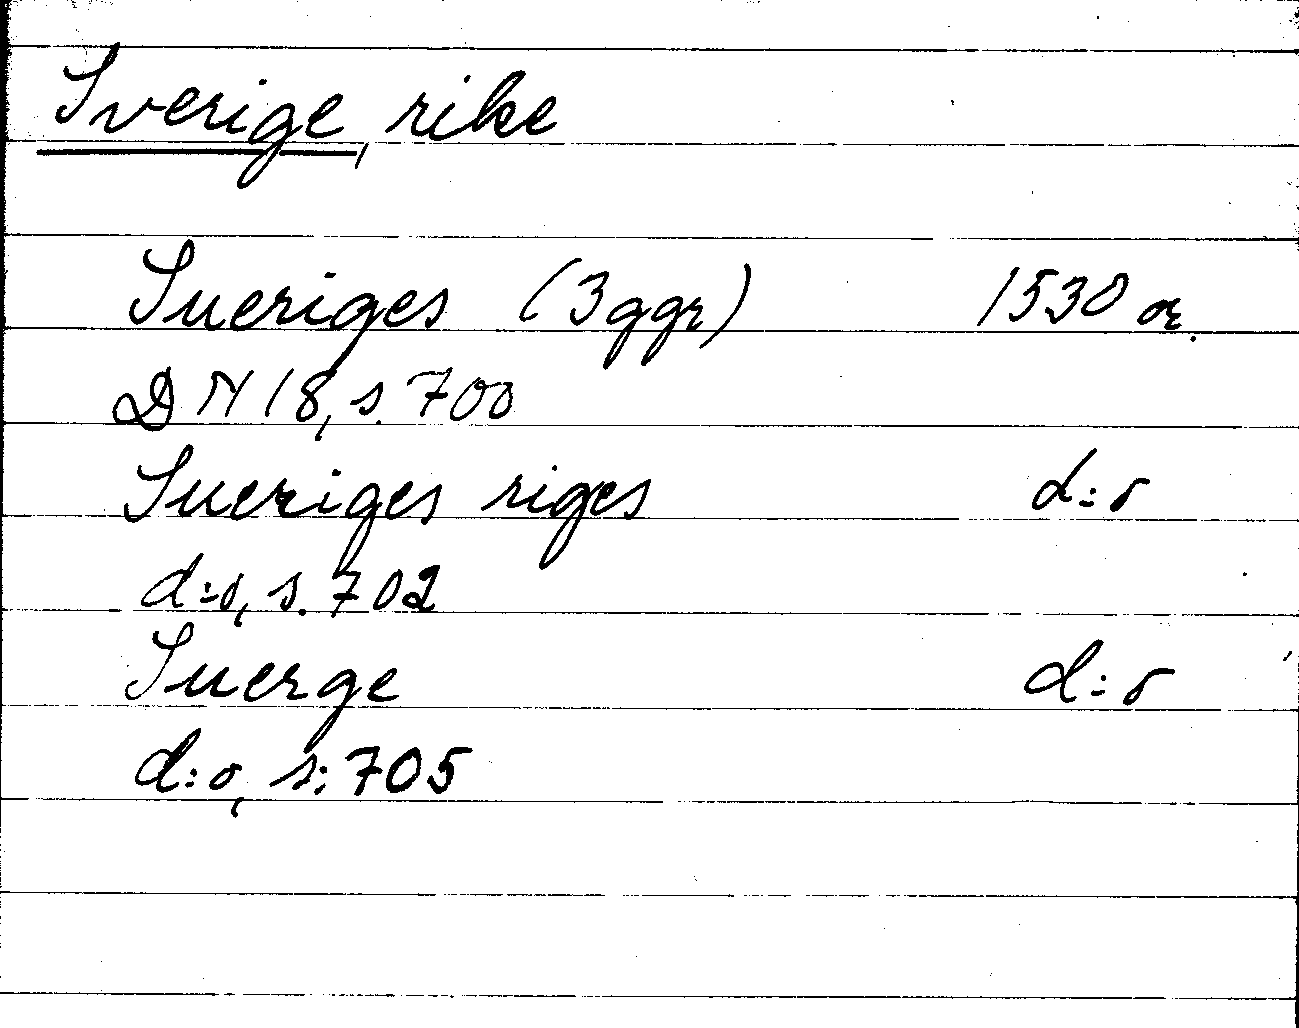 Sverige, rike
Sueriges (3 ggr) 1530 or.
DN 18, s. 700
Sueriges riges d:o
d:o, s. 702
Suerge d:o
d:o, s: 705